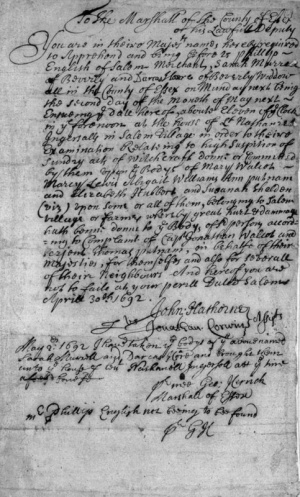 To the Marshall of the County of Essex
or his Lawfull Deputy
You are in theire Majesties names hereby required
to Apprehend and bring before us Phillip
English of Salem Merchant, Sarah Murrel
of Beverly and Dorcas Hoare of Beverly Widdow
all in the County of Essex on Munday next being
the second day of the Month of May next
Ensueing ye date hereof about Eleven of ye Clock
in ye forenoon at the house of Lt Nathaniel
Ingersalls in Salem Village in order to theire
Examination Relateing to high Suspition of
Sundry acts of Witchcraft donne or Committed
by them upon ye Bodys of Mary Walcot
Marcy Lewis Abigail Williams Ann putnam
and Elizabeth Hubbert and Susanah Sheldon
(viz) upon some or all of them, belonging to Salem
Village or farmes whereby great hurt & dammage
hath benne donne to ye Bodys of sd persons according
to Complaint of Capt Jonathan Walcot and
Serjent Thomas putnam, in behalfe of theire
Majesties for themselfes and also for severall
of theire Neighbours And hereof you are
not to faile at your perill Dated Salem
Aprill 30th 1692
John Hathorne
Jonathan Corwin
May 2d 1692 I have taken ye bodys of ye above named
Sarah Murell and Dorcas Hoare and brought them
unto ye house of Leut Nathaniell Ingersoll att ye time
pr mee Geo: Herrick
Marshall of Essex
mr Phillip English not being to be found
pr G H